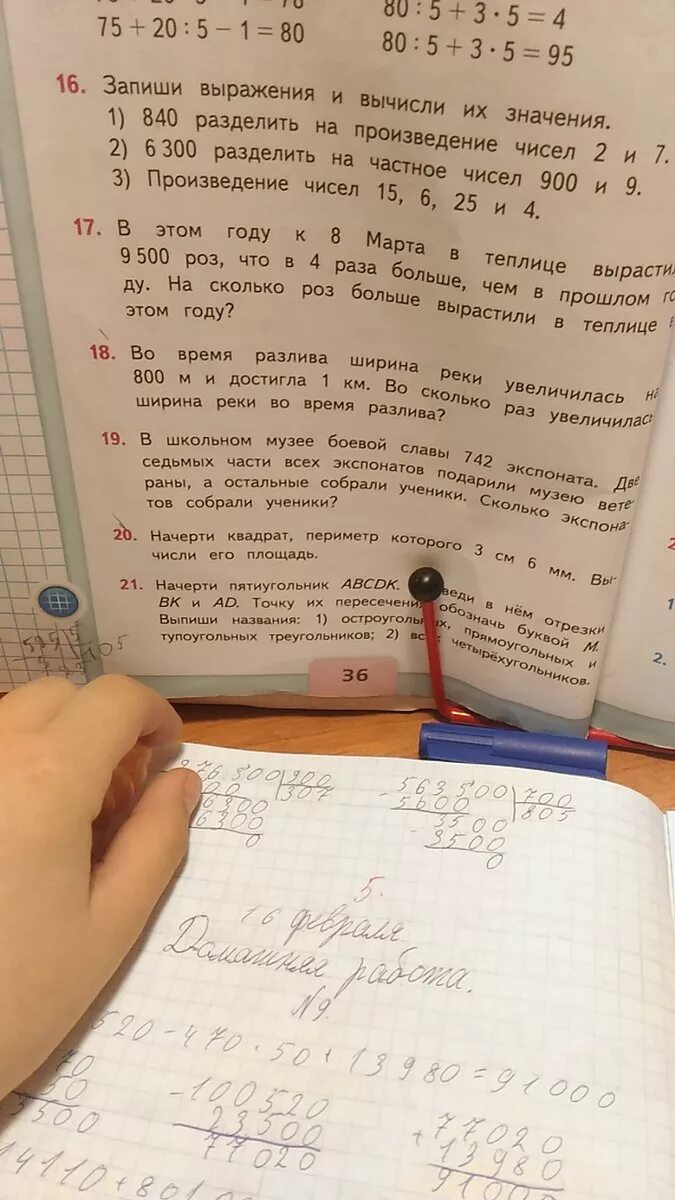 75 + 20 : 5 − 1 = 80
80 : 5 + 3 · 5 = 4
80 : 5 + 3 · 5 = 95
16. Запиши выражения и вычисли их значения.
1) 840 разделить на произведение чисел 2 и 7.
2) 6 300 разделить на частное чисел 900 и 9.
3) Произведение чисел 15, 6, 25 и 4.
17. В этом году к 8 Марта в теплице вырастил
9 500 роз, что в 4 раза больше, чем в прошлом го
ду. На сколько роз больше вырастили в теплице в
этом году?
18. Во время разлива ширина реки увеличилась на
800 м и достигла 1 км. Во сколько раз увеличилась
ширина реки во время разлива?
19. В школьном музее боевой славы 742 экспоната. Две
седьмых части всех экспонатов подарили музею вете-
раны, а остальные собрали ученики. Сколько экспона-
тов собрали ученики?
20. Начерти квадрат, периметр которого 3 см 6 мм. Вы-
числи его площадь.
21. Начерти пятиугольник ABCDK. веди в нём отрезки
BK и AD. Точку их пересечения обозначь буквой M.
Выпиши названия: 1) остроугольных, прямоугольных и
тупоугольных треугольников; 2) все четырёхугольников.
36
2.
76 300 900
307
6300
6300
0
563500 700
5600 805
3500
3500
0
5.
16 февраля.
Домашняя работа.
№9.
520 − 470 · 50 + 13 980 = 91 000
70
50
3500
− 100520
23500
77020
+ 77020
13980
91000
14110 + 801